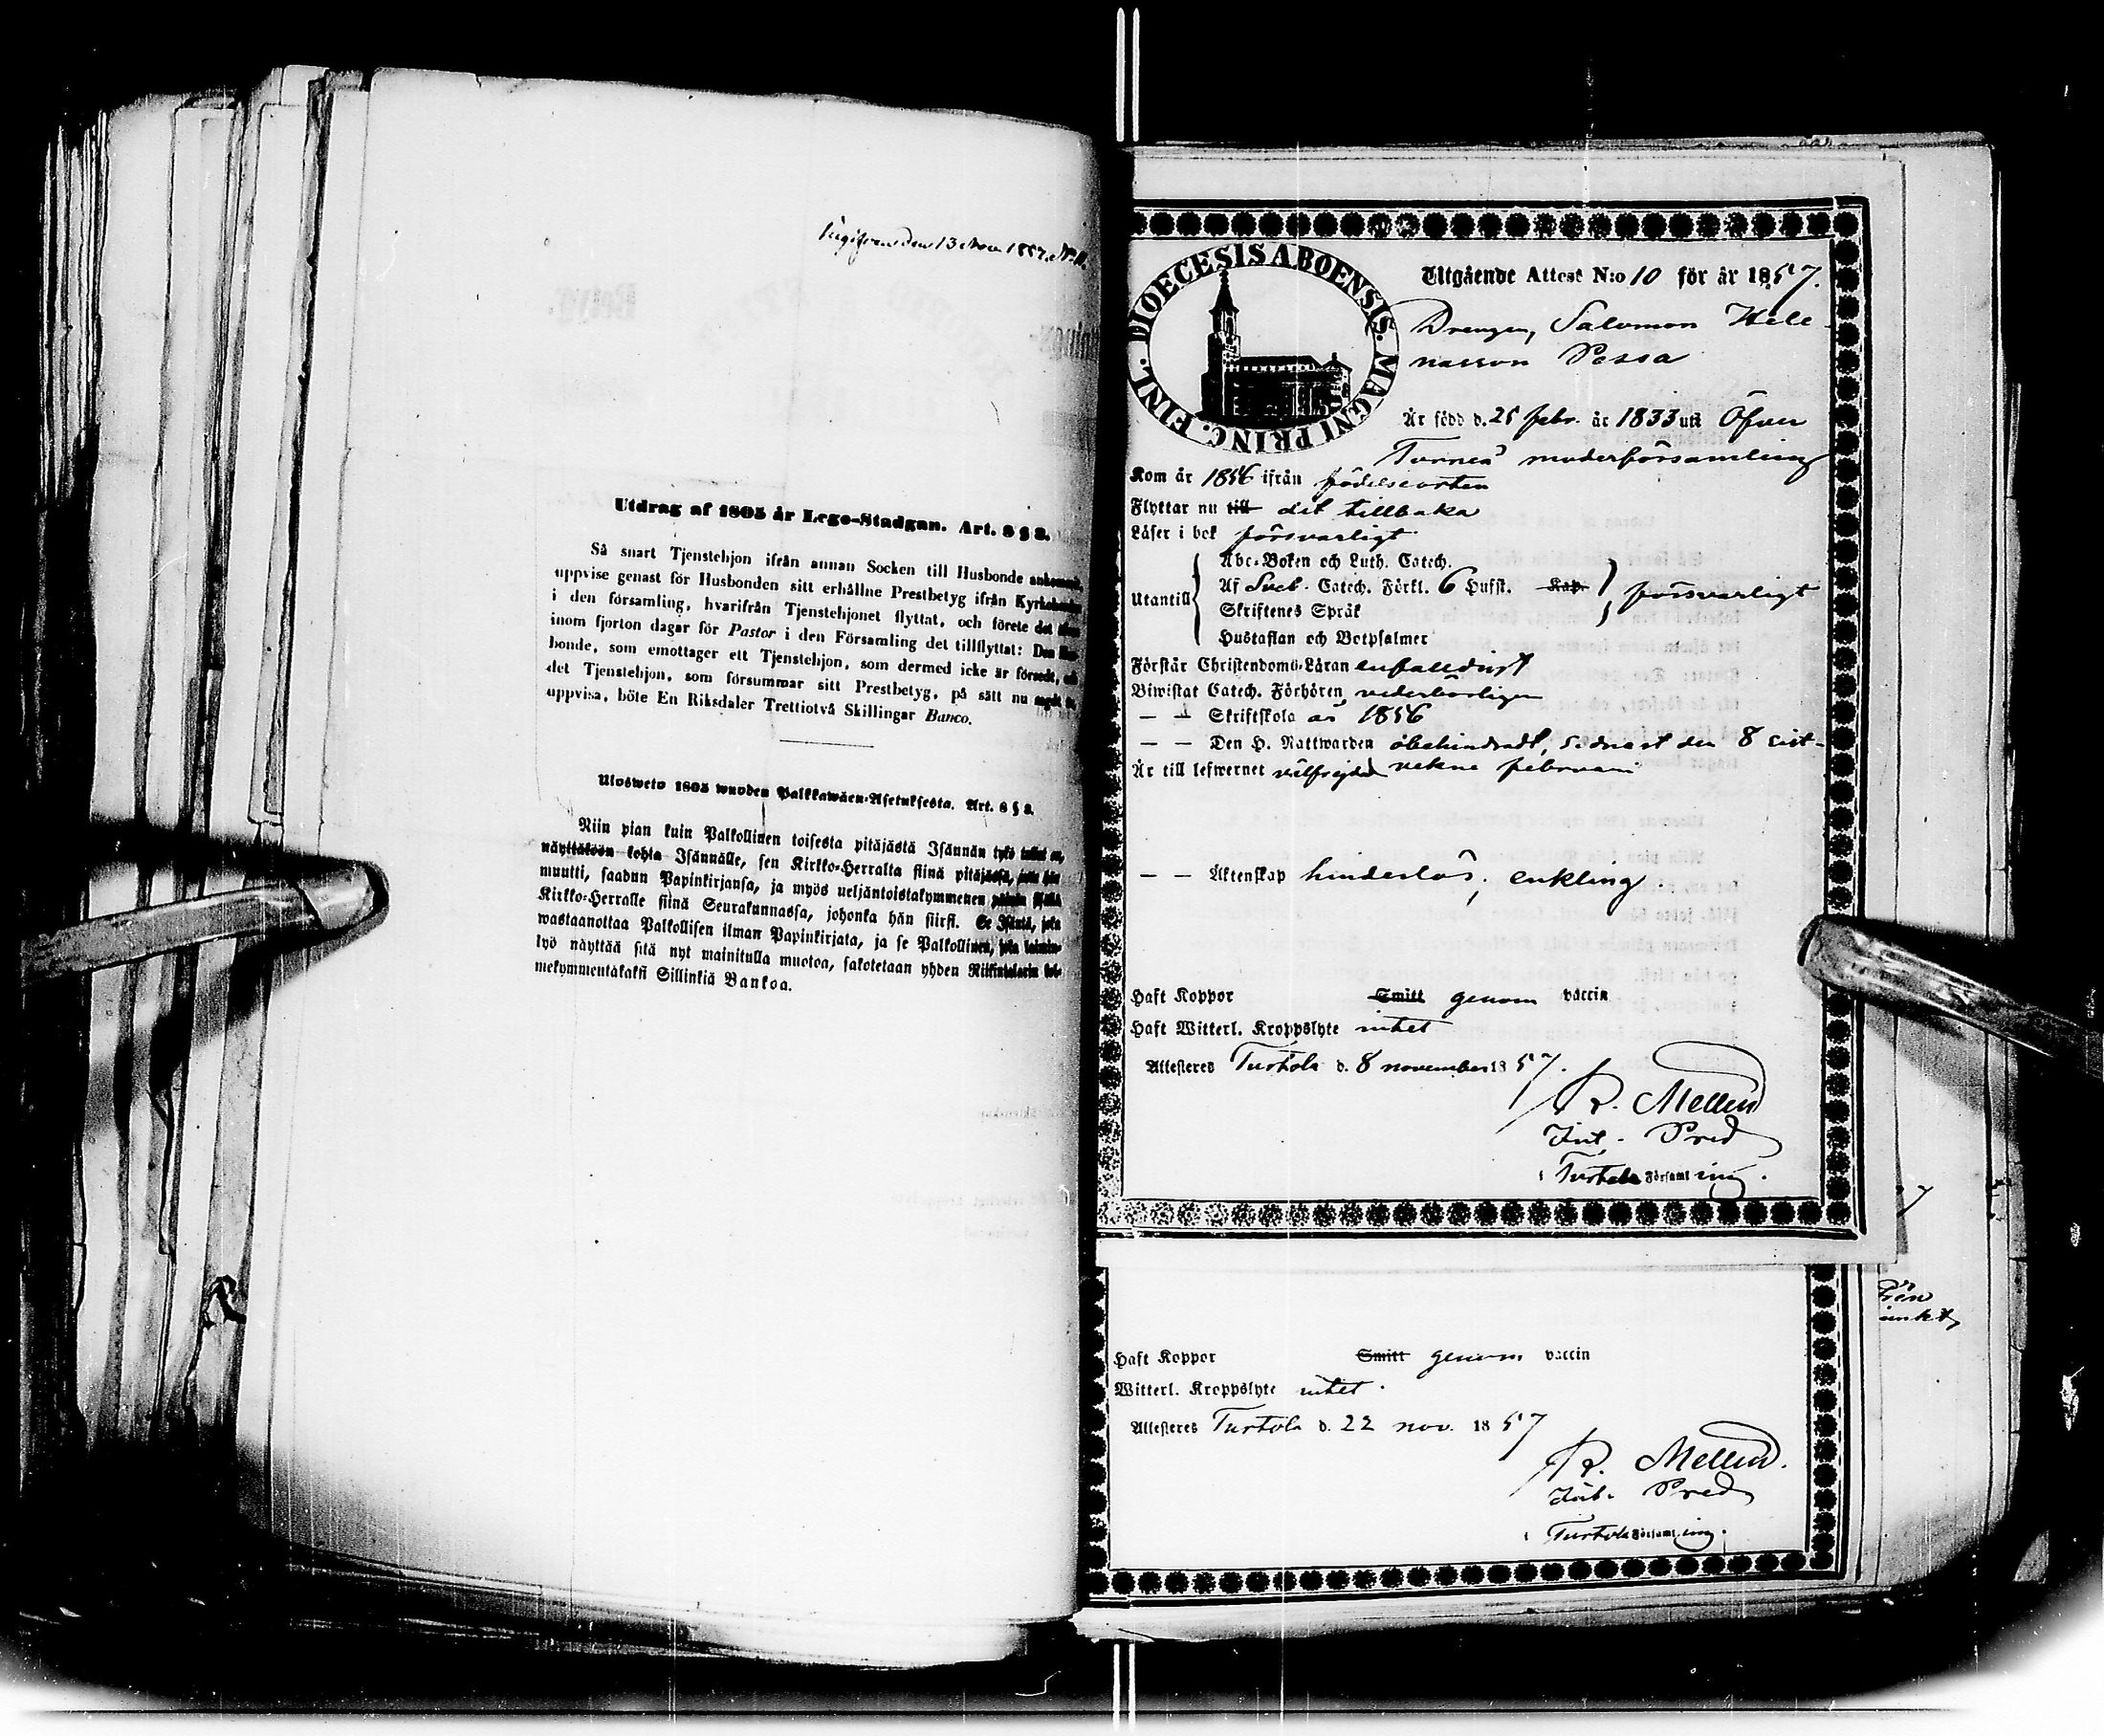 den 13 Nov 1857. N:o
Utdrag af 1805 år Lego-Stadgan. Art. 8 § 8.
Så snart Tjenstehjon ifrån annan Socken till Husbonde
uppvise genast för Husbonden sitt erhållne Prestbetyg ifrån
i den församling, hvarifrån Tjenstehjonet flyttat, och förete det
inom fjorton dagar för Pastor i den Församling det tillflyttat: Den
bonde, som emottager ett Tjenstehjon, som dermed icke är försedt,
det Tjenstehjon, som försummar sitt Prestbetyg, på sätt nu
uppvisa, böte En Riksdaler Trettiotvå Skillingar Banco.
Ulosweto 1805 wuoden Palkkawäen-Asetuksesta. Art. 8 § 8.
Niin pian kuin Palkollinen toisesta pitäjästä Isännän tykö
näyttäköön kohta Isännälle, sen Kirkko-Herralta siinä pitäjässä,
muutti, saadun Papinkirjansa, ja myös neljäntoistakymmenen
Kirkko-Herralle siinä Seurakunnassa, johonka hän siirsi. Se
wastaanottaa Palkollisen ilman Papinkirjata, ja se Palkollinen,
lyö näyttää sitä nyt mainitulla muotoa, sakotetaan yhden
mekymmentäkaksi Sillinkiä Bankoa.
DIOECESIS ABOENSIS. MAGNI PRINC. FINL.
Utgående Attest N:o 10 för år 1857.
Drengen, Salomon Hele-
nasson Pessa
Är född d. 25 febr. år 1833 uti Öfver
Torneå moderförsamling
Kom år 1856 ifrån födelseorten
Flyttar nu till dit tillbaka
Läser i bok försvarligt
Utantill
Abc-Boken och Luth. Catech.
Af Sveb. Catech. Förkl. 6 Hufst. Kap. försvarligt
Skriftenes Språk
Hustaflan och Botpsalmer
Förstår Christendoms-Läran enfaldigt
Biwistat Catech. Förhören vederbörligen
— — Skriftskola år 1856
— — Den H. Nattwarden obehindradt, sednast den 8 sist-
Är till lefwernet välfrejdad vekne februari
— — Äktenskap hinderlös, enkling.
Haft Koppor Smitt genom vaccin
Haft Witterl. Kroppslyte intet
Attesteres Turtola d. 8 november 1857.
R. Mellin
Pred
i Turtola Församling.
Haft Koppor Smitt genom vaccin
Witterl. Kroppslyte intet.
Attesteres Turtola d. 22 nov. 1857
R. Mellin.
Pred
i Turtola Församling.